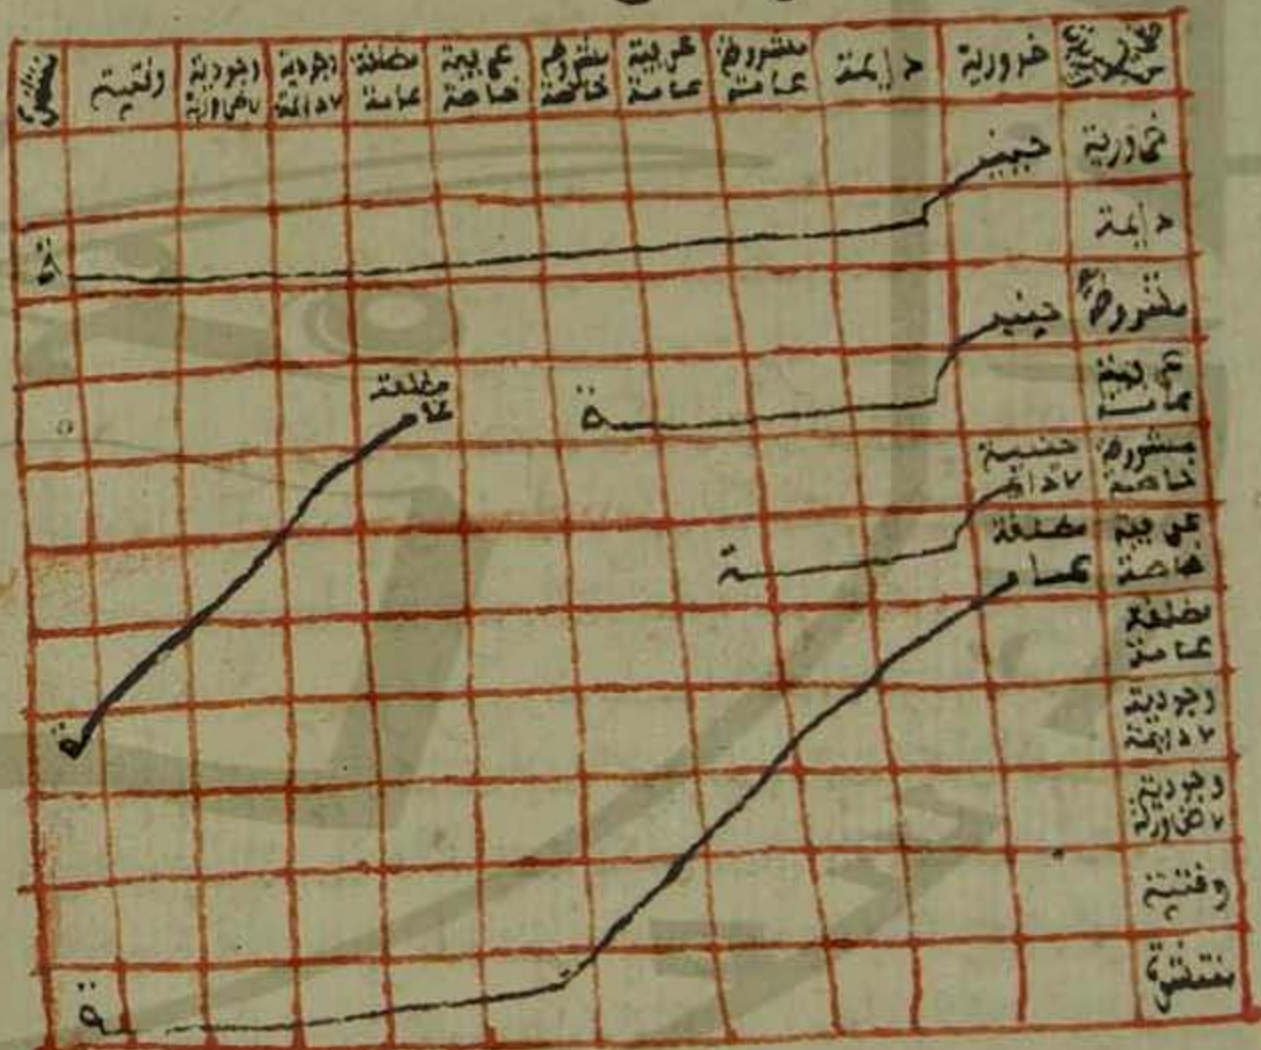 ضرورية دايمة مشروطة عامة عرفية عامة مشروطة خاصة عرفية خاصة مطلقة عامة وجودية لا دائمة وجودية لا ضرورية وقتية
ضرورية
حينيـ
دايمة
ـة
مشروطة
حينيـ
عرفية عامة
ـة
مطلقة عا
مشروطة خاصة
حينية لا دائـ
عرفية خاصة
ـة
مطلقة عـا
مطلقة عامة
وجودية لا دايمة
ـة
وجودية لا ضرورية
وقتية
منتشرة
ـة